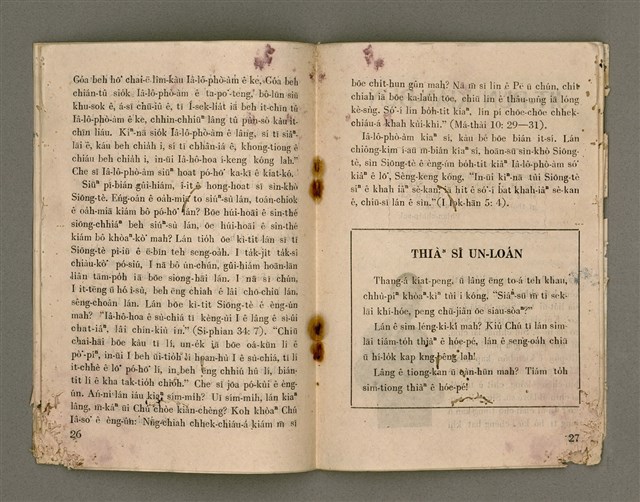 Góa beh hō͘ chai-ē lîm-kàu Iâ-lô-phò-àm ê ke, Góa beh
chián-tû siok Iâ-lô-phò-àm ê ta-po͘-teng, bô-lūn sīu
khu-sok ê, á-sī chū-iû ê, tī Í-sek-lia̍t iā beh it-chīn tû
Iâ-lô-phò-àm ê ke, chhin-chhiūⁿ lâng tû pùn-sò kàu it-
chīn liáu. Kìⁿ-nā sio̍k Iâ-lô-phò-àm ê lâng, sí tī siâⁿ-
lāi ê, káu beh chia̍h i, sí tī chhân-iá ê, khong-tiong ê
chiáu beh chia̍h i, in-ūi Iâ-hô-hoa í-keng kóng lah."
Che sī Iâ-lô-phò-àm siūⁿ hoat pó-hō͘ ka-kī ê kiat-kó.
Siūⁿ pī-bián gûi-hiám, i-it ê hong-hoat sī sìn-khò
Siōng-tè. Eng-oán ê oa̍h-miā to siúⁿ-sù lán, toán-chio̍k
ê oa̍h-miā kiám bô pó-hō͘ lán? Bōe húi-hoāi ê sin-thé
siōng-chhiáⁿ beh siúⁿ-sù lán, ōe húi-hoāi ê sin-thé
kiám bô khòaⁿ-kò͘ mah? Lán tio̍h ōe kì-tit lán sī tī
Siōng-tè pī-iú ê ū-bîn teh seng-oa̍h. I ta̍k-ji̍t ta̍k-sî
chiàu-kò͘ pó-siú, I nā bô ún-chún, gûi-hiám hoān-lān
liân tām-po̍h iā bōe siong-hāi lán. I nā sī chún,
I it-tēng ū hó ì-sù, beh ēng chiah ê lâi chō-chiū lán,
sêng-choân lán. Lán bōe kì-tit Siōng-tè ê èng-ún
mah? "Iâ-hô-hoa ê sù-chiá tī kèng-ùi I ê lâng ê sì-ûi
chat-iâⁿ, lâi chín-kiù in." (Si-phian 34: 7). "Chiū
chai-hāi bōe kàu tī lí, un-e̍k iā bōe oá-kūn lí ê
pò͘-pîⁿ, in-ūi I beh ūi-tio̍h lí hoan-hù I ê sù-chiá, tī lí
it-chhè ê lō͘ pó-hō͘ lí, in beh ēng chhiú hû lí, bián-
tit lí ê kha tak-tio̍h chio̍h." Che sī jōa pó-kùi ê èng-
ún. Án-ni lán iáu kiaⁿ sím-mi̍h? Ui sím-mi̍h, lán kiaⁿ
lâng, m̄-káⁿ ūi Chú chòe kiàn-chèng? Koh khòaⁿ Chú
Iâ-so͘ ê èng-ún: Nn̄g-chiah chhek-chiáu-á kiám m̄ sī
26
bōe chi̍t-hun gûn mah? Nā m̄ sī lín ê Pē ú chún, chi̍t
chiah iā bōe ka-lau̍h tōe, chiū lín ê thâu-mn̂g iā lóng
kè-sǹg. Só͘-í lín bo̍h-tit kiaⁿ, lín pí chōe-chōe chhek-
chiáu-á khah kùi-khì." (Má-thài 10: 29—31).
Iâ-lô-phò-àm kiaⁿ sí, káu bē bōe bián it-sí. Lán
chiông-kim í-āu m̄-bián kiaⁿ sí, hoān-sū sìn-khò Siōng-
tè, sìn Siōng-tè ê èng-ún bo̍h-tit kiaⁿ Iâ-lô-phò-àm só͘
kiaⁿ ê lō͘, Sèng-keng kóng, "In-ūi kìⁿ-nā tùi Siōng-tè
siⁿ ê khah iâⁿ sè-kan, iā hit ê só͘-í bat khah-iâⁿ sè-kan
ê, chiū-sī lán ê sìn." (I Iok-hān 5: 4).
THIÀⁿ SÎ UN-LOÂN
Thang-á kiat-peng, ū lâng ēng to-á teh khau,
chhù-piⁿ khòaⁿ-kìⁿ tùi i kóng, "Siáⁿ-sū m̄ tī sek-
lāi khí-hóe, peng chū-jiân ōe siau-sòaⁿ?"
Lán ê sim léng-ki-ki mah? Kiû Chú tī lán sim-
lāi tiám-to̍h thiàⁿ ê hóe-pé, lán ê seng-oa̍h chiū
ū hi-lo̍k kap kng-bêng lah!
Lâng ê tiong-kan ū oan-hūn mah? Tiám to̍h
sim-tiong thiàⁿ ê hóe-pé!
27